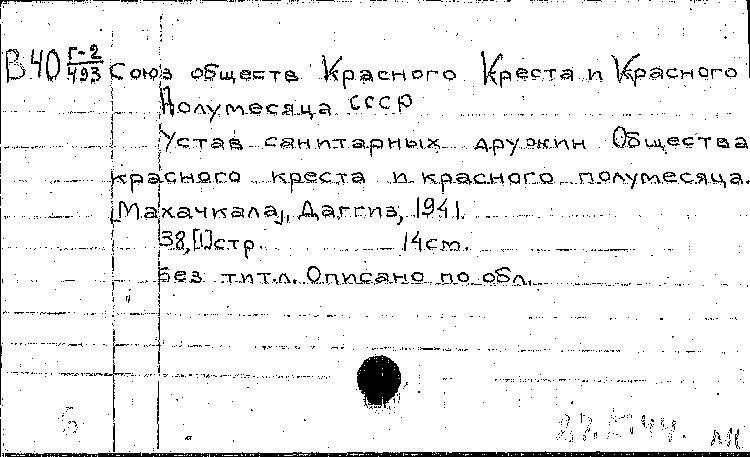 В 40 Г-2/493 Союз обществ Красного Креста и Красного
Полумесяца СССР
Устав санитарных дружин Общества
красного креста и красного полумесяца.
[Махачкала], Даггиз, 1941.
38,[1]стр. 14см.
Без тит.л. Описано по обл.
Б